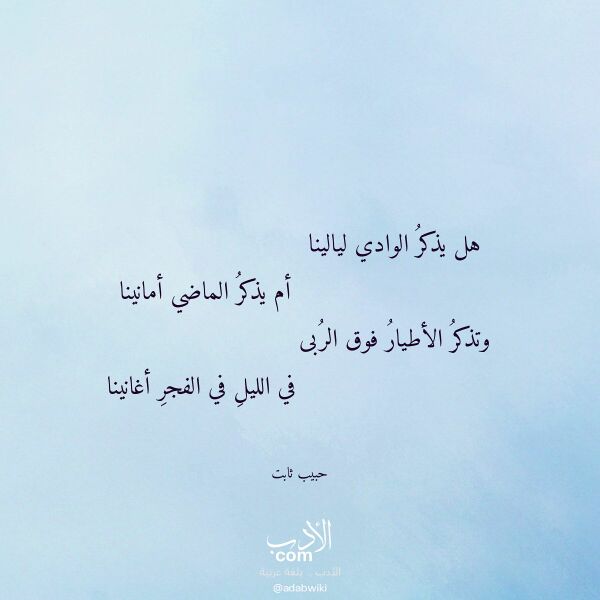 هل يذكرُ الوادي ليالينا
أم يذكرُ الماضي أمانينا
وتذكرُ الأطيارُ فوق الرُبى
في الليلِ في الفجرِ أغانينا
حبيب ثابت
الأدب
com
الأدب .. بلغة عربية
@adabwiki